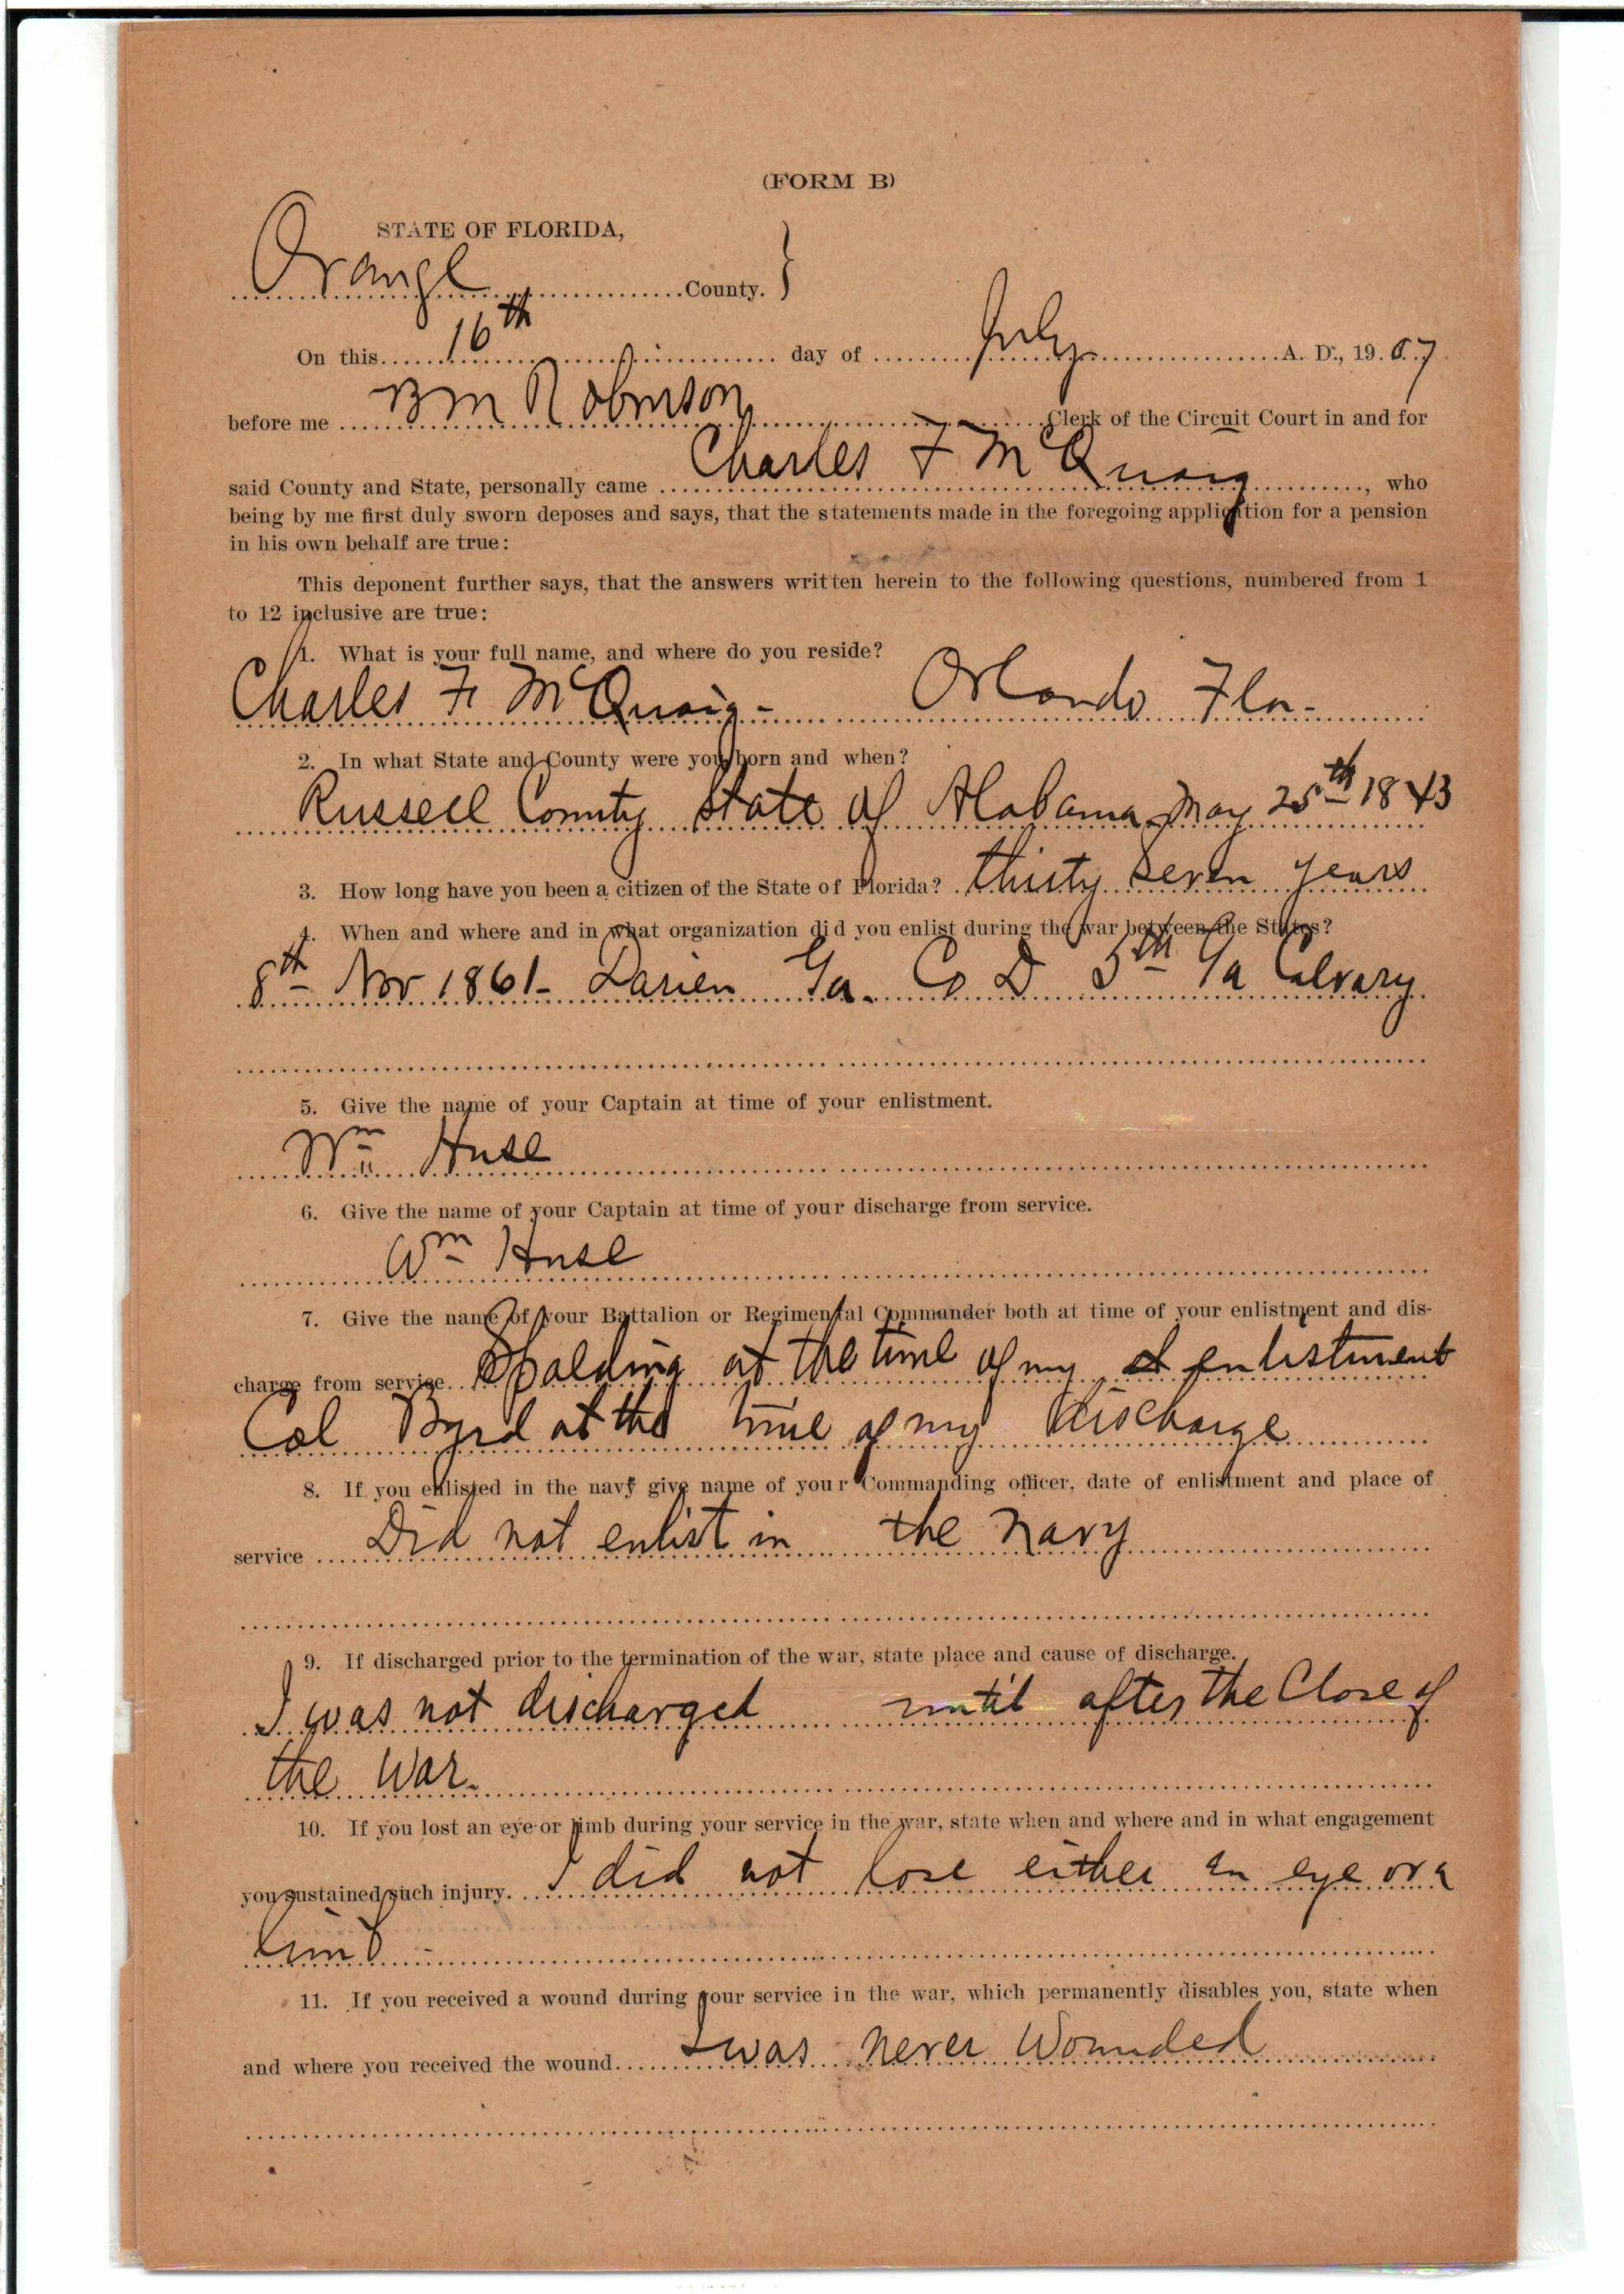 (FORM B)
STATE OF FLORIDA,
Orange County.
On this 16th day of July A. D., 19 07
before me BM Robinson Clerk of the Circuit Court in and for
said County and State, personally came Charles F McQuaig, who
being by me first duly sworn deposes and says, that the statements made in the foregoing application for a pension
in his own behalf are true:
This deponent further says, that the answers written herein to the following questions, numbered from 1
to 12 inclusive are true:
1. What is your full name, and where do you reside?
Charles F. McQuaig - Orlando Fla-
2. In what State and County were you born and when?
Russell County State of Alabama May 25th 1843
3. How long have you been a citizen of the State of Florida? thirty seven years
4. When and where and in what organization did you enlist during the war between the States?
8th Nov 1861- Darien Ga. Co D 5th Ga Calvary
5. Give the name of your Captain at time of your enlistment.
Wm Huse
6. Give the name of your Captain at time of your discharge from service.
Wm Huse
7. Give the name of your Battalion or Regimental Commander both at time of your enlistment and dis-
charge from service. Spalding at the time of my enlistment
Col Byrd at the time of my discharge
8. If you enlisted in the navy give name of your Commanding officer, date of enlistment and place of
service Did not enlist in the navy
9. If discharged prior to the termination of the war, state place and cause of discharge.
I was not discharged until after the Close of
the War.
10. If you lost an eye or limb during your service in the war, state when and where and in what engagement
you sustained such injury. I did not lose either an eye or a
limb -
11. If you received a wound during your service in the war, which permanently disables you, state when
and where you received the wound. I was never Wounded